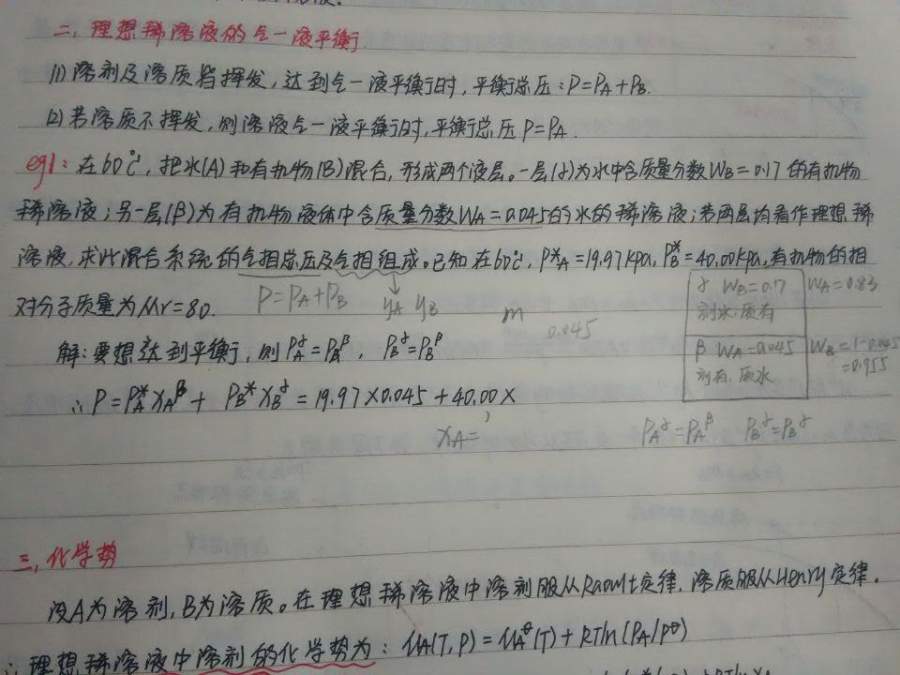 二、理想稀溶液的气一液平衡
(1) 溶剂及溶质皆挥发，达到气一液平衡时，平衡总压：P=PA+PB.
(2) 若溶质不挥发，则溶液气一液平衡时，平衡总压 P=PA.
eg1：在60℃，把水(A)和有机物(B)混合，形成两个液层。一层(α)为水中含质量分数WB=0.17的有机物
稀溶液；另一层(β)为有机物液体中含质量分数WA=0.045的水的稀溶液；若两层均看作理想稀
溶液，求此混合系统的气相总压及气相组成。已知在60℃，P*A=19.97kpa，P*B=40.00kpa，有机物的相
对分子质量为Mr=80.
P=PA+PB
yA yB
m
0.045
α WB=0.17
剂水.质有
WA=0.83
β WA=0.045
剂有.质水
WB=1-0.045
=0.955
解：要想达到平衡，则PAα=PAβ，PBα=PBβ
∴ P=PA*XAβ + PB*XBα = 19.97×0.045+40.00×
XA=
PAα=PAβ PBα=PBα
三、化学势
设A为溶剂，B为溶质。在理想稀溶液中溶剂服从Raoult定律，溶质服从Henry定律.
∴理想稀溶液中溶剂的化学势为：μA(T,P)=μAθ(T)+RTln(PA/pθ)